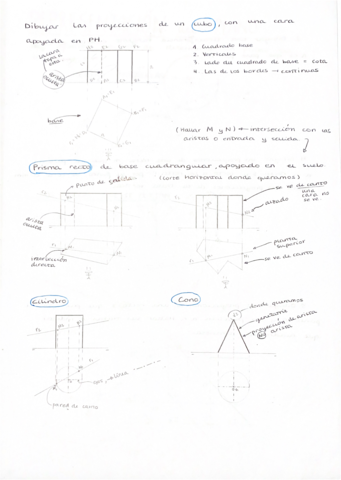 Dibujar las proyecciones de un cubo, con una cara
apoyada en PH.
1. Cuadrado base
2. Verticales
3. Lado del cuadrado de base = cota
4. Las de los bordes → continuas
arista oculta
base
(Hallar M y N) → intersección con las
aristas o entrada y salida.
Prisma recto de base cuadrangular, apoyado en el suelo.
(corte horizontal donde queramos)
Punto de salida
se ve de canto
una cara no se ve
alzado
arista oculta
planta superior
se ve de canto
intersección directa
Cilindro
Cono
donde queramos
generatriz
proyección de arista
arista
pared de canto